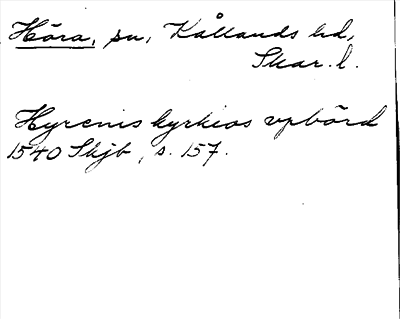 Höra, sn, Kållands hd,
Skar. l.
Hyrenis kyrkios vpbörd
1540 Skjb, s. 157.